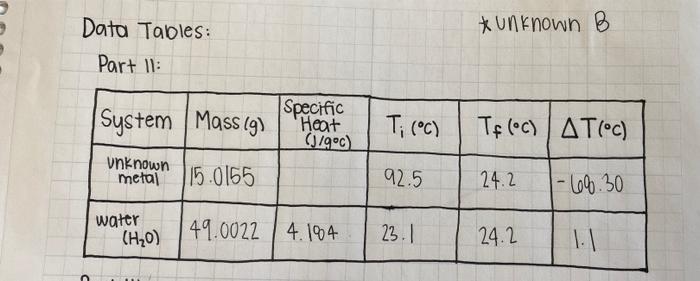 Data Tables:
* unknown B
Part II:
System Mass (g) Specific Heat (J/g°C) Ti (°C) Tf (°C) ΔT (°C)
unknown metal 15.0155 92.5 24.2 -68.30
water (H₂O) 49.0022 4.184 23.1 24.2 1.1